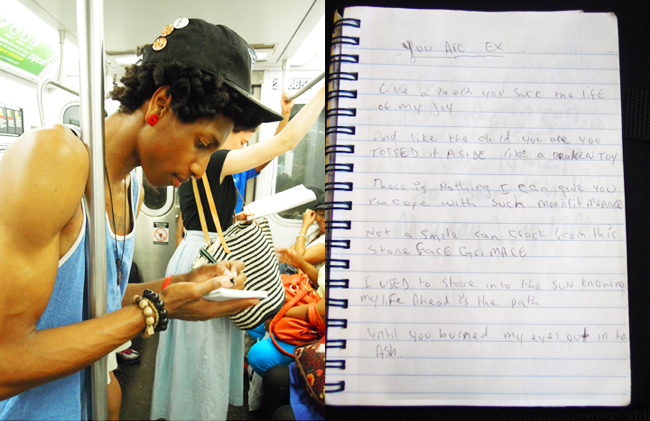 You Are EX
Like a leach you suck the life
of my Joy
And like the child you are you
TOSSED it ASIDE like a BROKEN TOY
There is Nothing I can give you
To cope with such moonlit menace
Not a smile can crack from this
Stone FACE GriMACE
I USED to stare into the SUN knowing
my life Ahead is the path
Until you burned my eyes out in to
ASh.